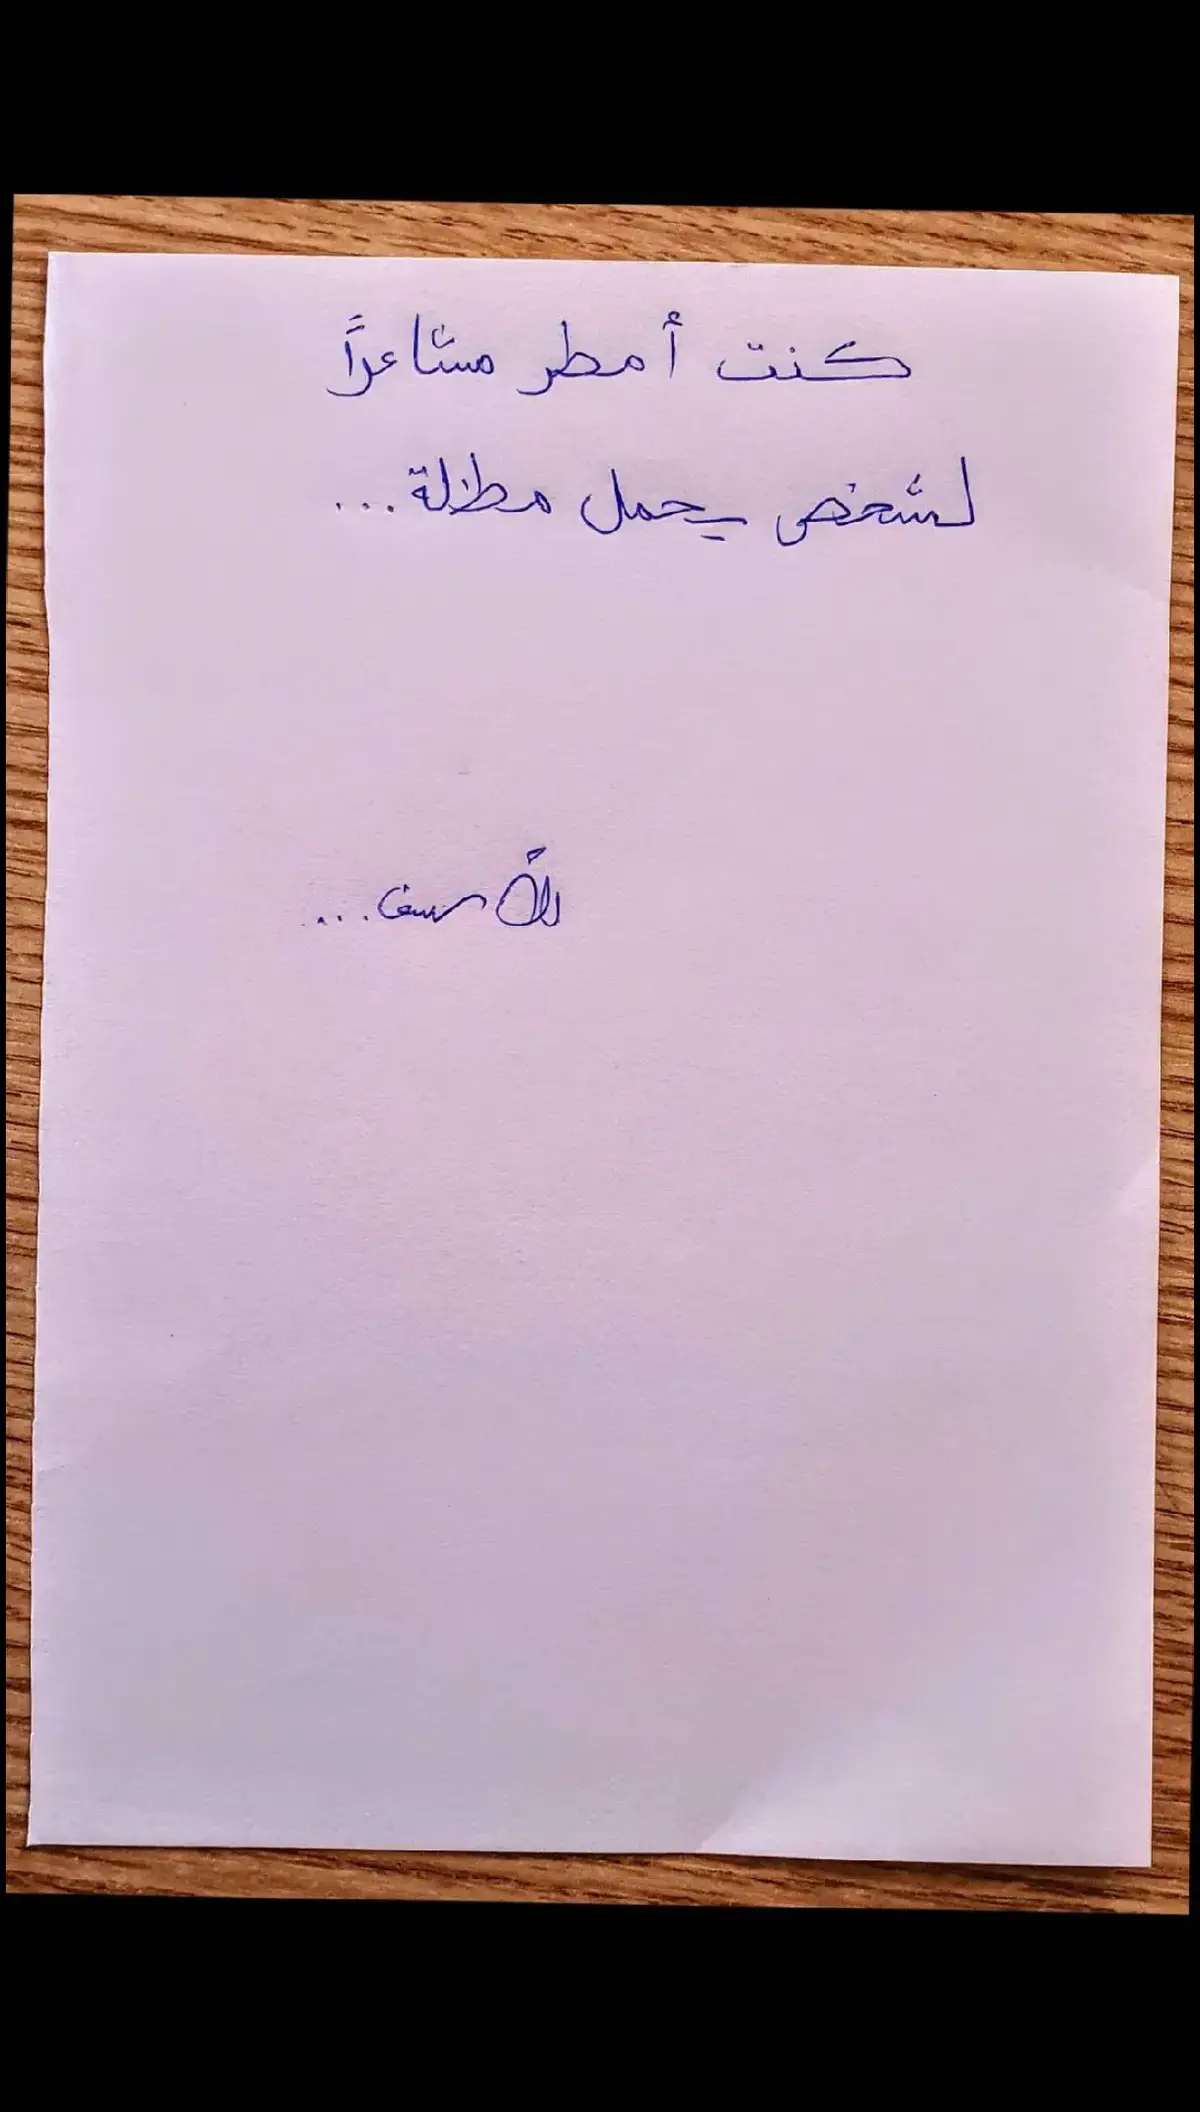 كنت أمطر مشاعراً
لشخص يحمل مظلة...
للأسف...